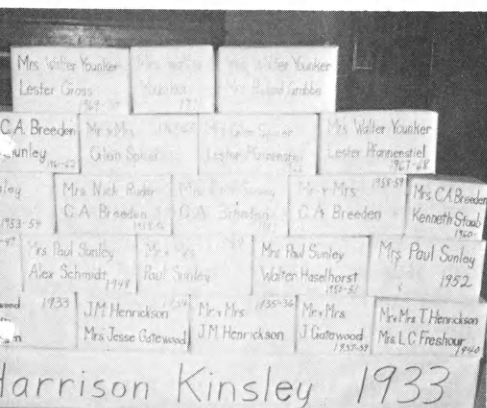 Mrs Walter Younker
Lester Gross
Mrs Walter Younker
Mrs Roland Grabbe
C.A. Breeden
Sunley
1961-62
Mr & Mrs
Glen Spicer
Glen Spicer
Lester Pfannenstiel
Mrs Walter Younker
Lester Pfannenstiel
1967-68
1953-54
Mrs Nick Ruder
C.A. Breeden
C.A. Breeden
Mr & Mrs 1958-59
C.A. Breeden
Mrs C.A. Breeden
Kenneth Staab
1960
Mrs Paul Sunley
Alex Schmidt 1948
Mr & Mrs
Paul Sunley
Mrs Paul Sunley
Walter Haselhorst
Mrs Paul Sunley
1952
1933
J.M. Henrickson
Mrs Jesse Gatewood
Mr & Mrs 1935-36
J.M. Henrickson
Mr & Mrs
J Gatewood
1937-39
Mr & Mrs T. Henrickson
Mrs L.C. Freshour
1940
Harrison Kinsley 1933